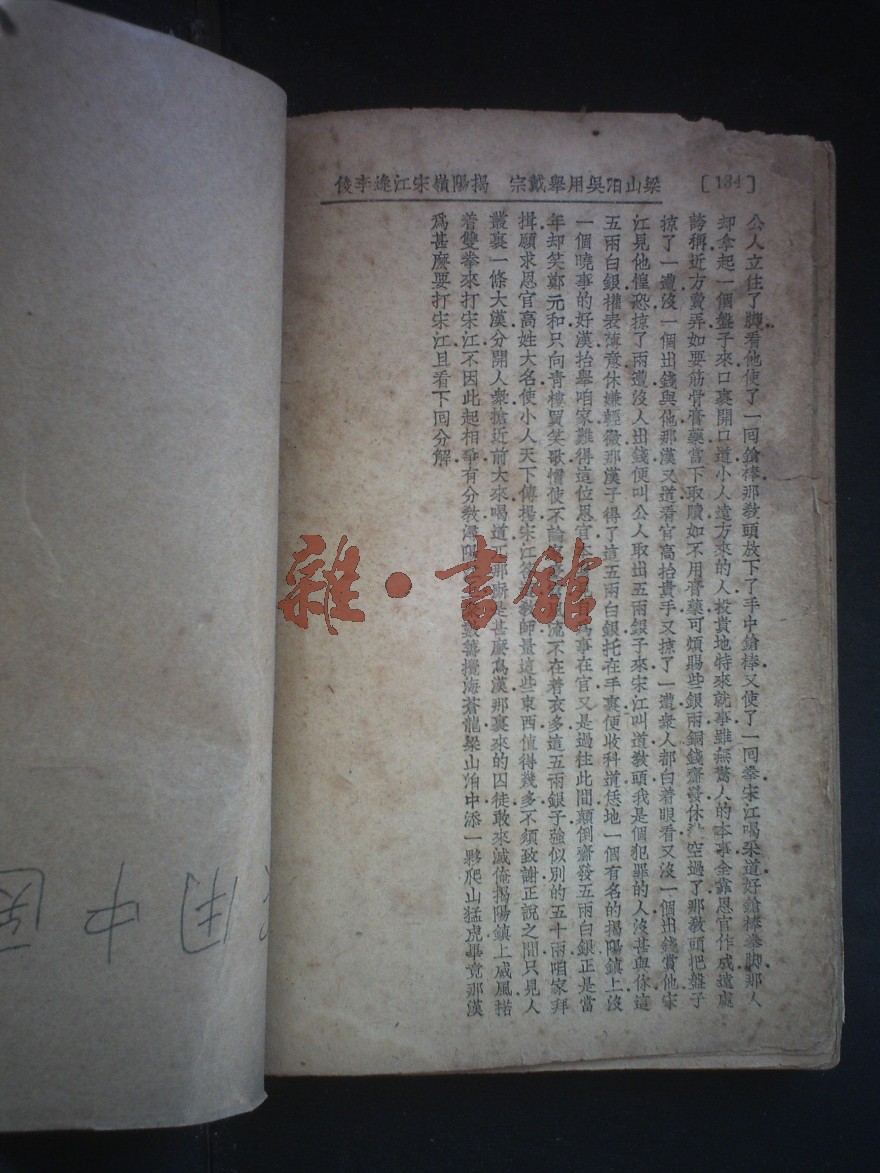 梁山泊吳用舉戴宗　揭陽嶺宋江逢李俊
公人立住了脚看他使了一回鎗棒那教頭放下了手中鎗棒又使了一回拳宋江喝采道好鎗棒拳脚那人
却拿起一個盤子來口裏開口道小人遠方來的人投貴地特來就事雖無驚人的本事全靠恩官作成遠處
誇稱近方賣弄如要筋骨膏藥當下取贖如不用膏藥可煩賜些銀兩銅錢齎發休空過了那教頭把盤子
掠了一遭沒一個出錢與他那漢又道看官高抬貴手又掠了一遭衆人都白着眼看又沒一個出錢賞他宋
江見他惶恐掠了兩遭沒人出錢便叫公人取出五兩銀子來宋江叫道教頭我是個犯罪的人沒甚與你這
五兩白銀權表薄意休嫌輕微那漢子得了這五兩白銀托在手裏便收科道恁地一個有名的揭陽鎮上沒
一個曉事的好漢抬舉咱家難得這位恩官爲事在官又是過往此間顛倒齎發五兩白銀正是當
年却笑鄭元和只向青樓買笑歌慣使不論流不在着衣多這五兩銀子強似別的五十兩咱家拜
揖願求恩官高姓大名使小人天下傳揚宋江教師量這些東西值得幾多不須致謝正說之間只見人
叢裏一條大漢分開人衆搶近前大來喝道兀那厮是甚麽鳥漢那裏來的囚徒敢來滅俺揭陽鎮上威風搭
着雙拳來打宋江不因此起相爭有分教潯陽籌攪海蒼龍梁山泊中添一夥爬山猛虎畢竟那漢
爲甚麽要打宋江且看下回分解
雜·書館
用中